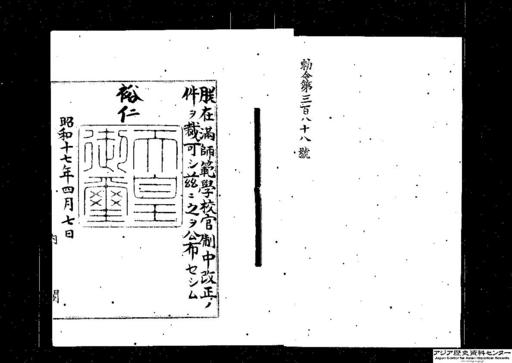 勅令第三百八十八號
朕在滿師範學校官制中改正ノ
件ヲ裁可シ茲ニ之ヲ公布セシム
裕仁
天皇御璽
昭和十七年四月七日
内閣
アジア歴史資料センター
Japan Center for Asian Historical Records